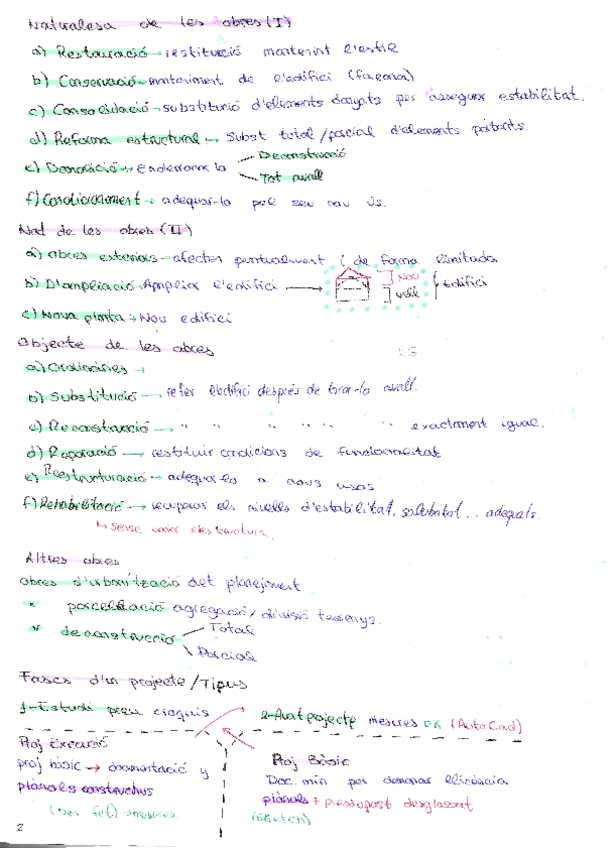 Naturalesa de les obres (I)
a) Restauració → restitució mantenint l'estil
b) Conservació → manteniment de l'edifici (façana)
c) Consolidació → substitució d'elements danyats per assegurar estabilitat.
d) Reforma estructural → Subst total/parcial d'elements portants
e) Demolició → Enderrocar-la
Deconstrucció
Tot avall
f) Condicionament → adequar-lo pel seu nou ús.
Nat de les obres (II)
a) obres exteriors → afecten puntualment i de forma limitada
b) D'ampliació → Ampliar l'edifici →
Nou
vell
Edifici
c) Nova planta → Nou edifici
Objecte de les obres
a) Ordinàries →
b) Substitució → refer l'edifici després de tirar-lo avall.
c) Reconstrucció → " " " " " " exactament igual.
d) Reparació → restituir condicions de funcionalitat
e) Reestructuració → adequar-lo a nous usos
f) Rehabilitació → recuperar els nivells d'estabilitat, salubritat... adequats.
↳ sense variar estructura.
Altres obres
obres d'urbanització del planejament
" parcel·lació agregació/divisió terrenys.
" deconstrucció
Total
Parcial
Fases d'un projecte/Tipus
1-Estudi previ croquis
2-Avantprojecte mesures OK (AutoCad)
Proj Execució
proj bàsic → documentació y
plànols constructius
Proj Bàsic
Doc. mín per demanar llicència
plànols + pressupost desglossat
(sketch)
2